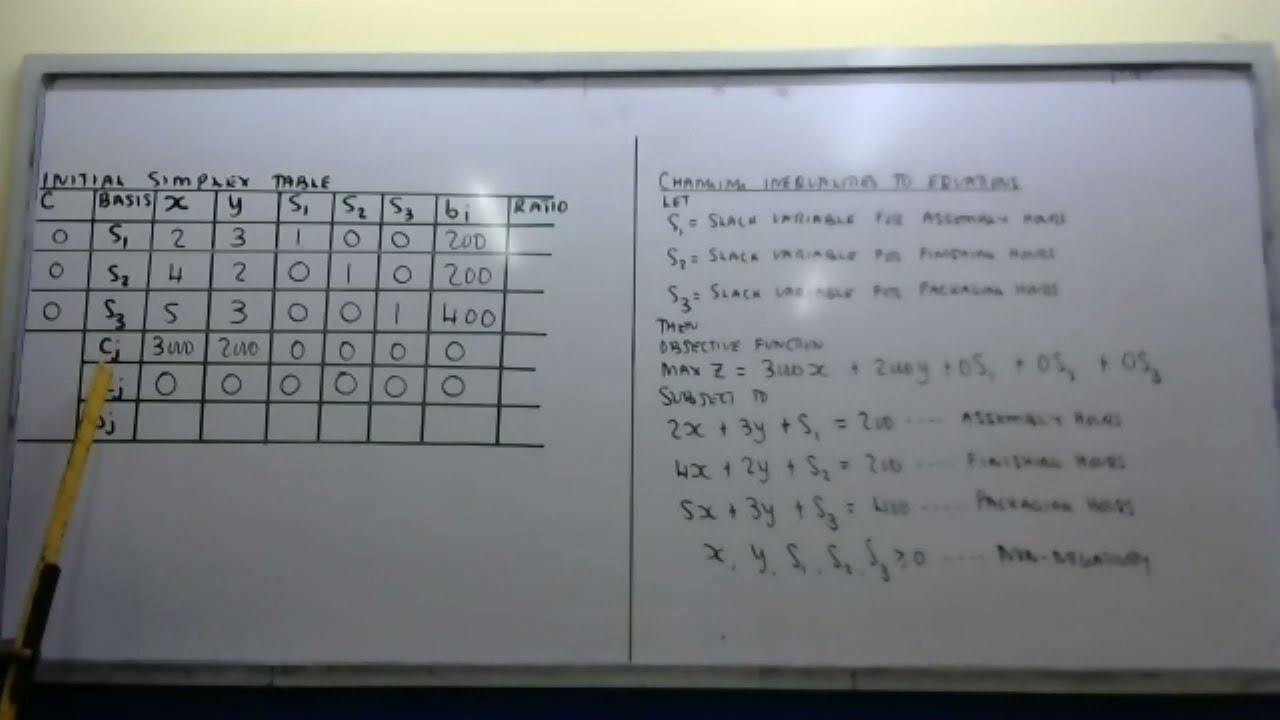 INITIAL SIMPLEX TABLE
C BASIS x y S₁ S₂ S₃ bi RATIO
0 S₁ 2 3 1 0 0 200
0 S₂ 4 2 0 1 0 200
0 S₃ 5 3 0 0 1 400
Cj 3000 2000 0 0 0 0
j 0 0 0 0 0 0
j
CHANGING INEQUALITIES TO EQUATIONS
LET
S₁ = SLACK VARIABLE FOR ASSEMBLY HOURS
S₂ = SLACK VARIABLE FOR FINISHING HOURS
S₃ = SLACK VARIABLE FOR PACKAGING HOURS
THEN
OBJECTIVE FUNCTION
MAX Z = 3000x + 2000y + 0S₁ + 0S₂ + 0S₃
SUBJECT TO
2x + 3y + S₁ = 200 ..... ASSEMBLY HOURS
4x + 2y + S₂ = 200 ..... FINISHING HOURS
5x + 3y + S₃ = 400 ..... PACKAGING HOURS
x, y, S₁, S₂, S₃ ≥ 0 ..... NON-NEGATIVITY